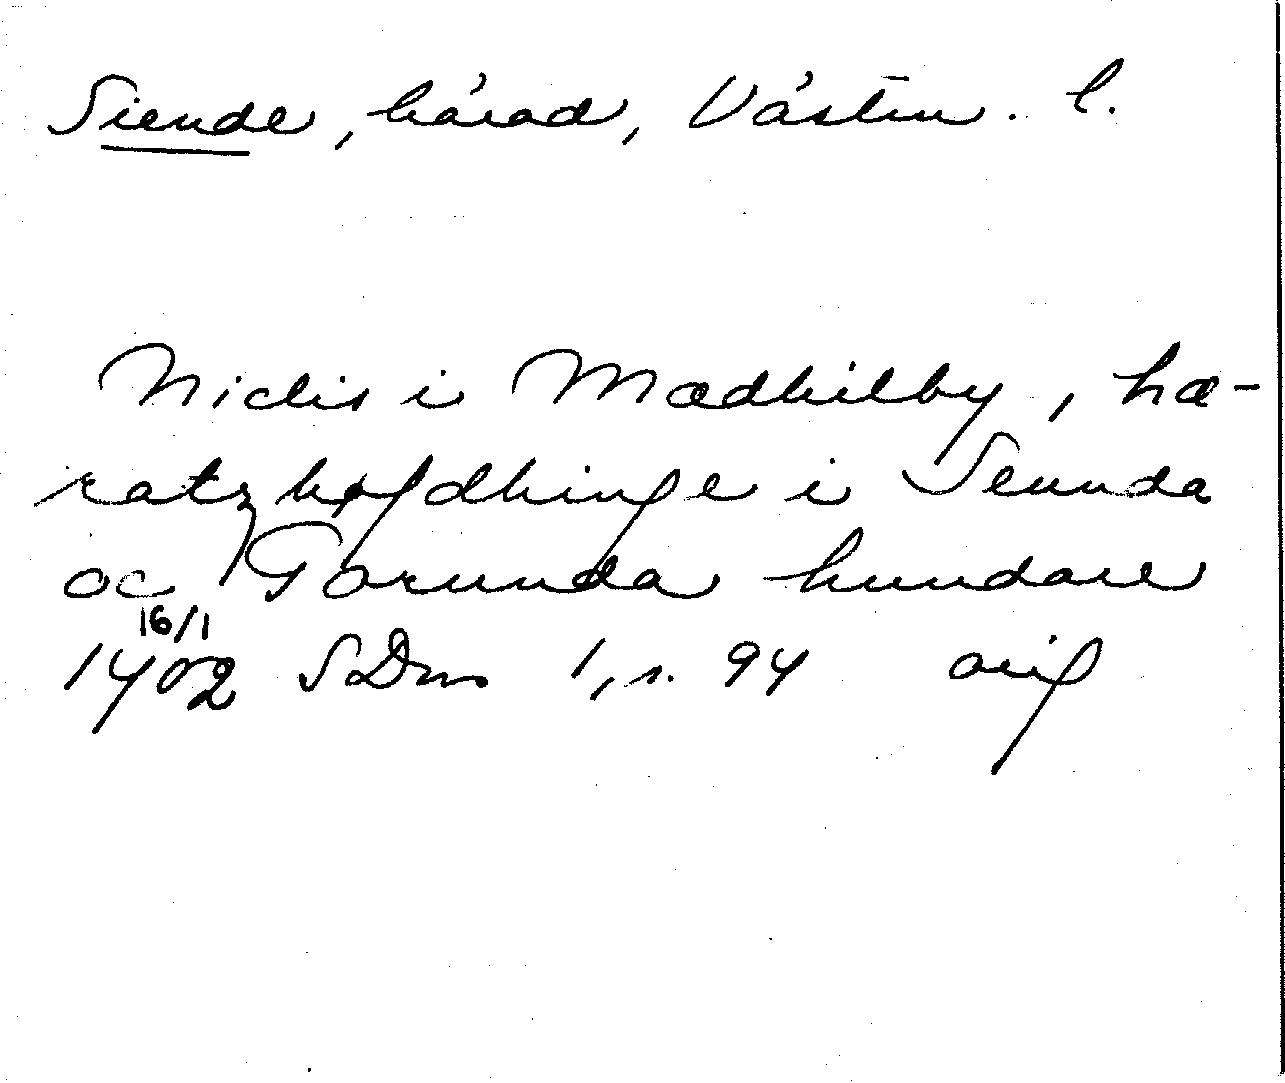 Siende, härad, Västm. l.
Niclis i Mædhilby, hæ-
ratzhøfdhinge i Seunda
oc Torunda hundare
16/1
1402 SDns 1, s. 94 orig